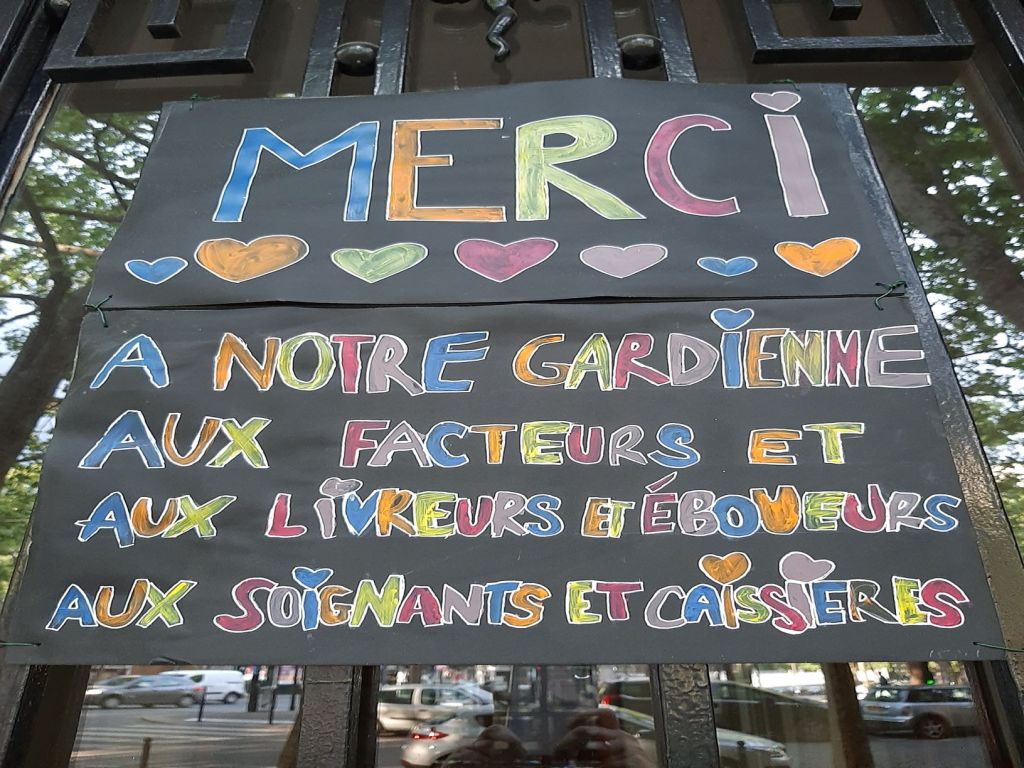 MERCi
A NOTRE GARDiENNE
AUX FACTEURS ET
AUX LiVREURS ET ÉBOUEURS
AUX SOiGNANTS ET CAiSSiERES